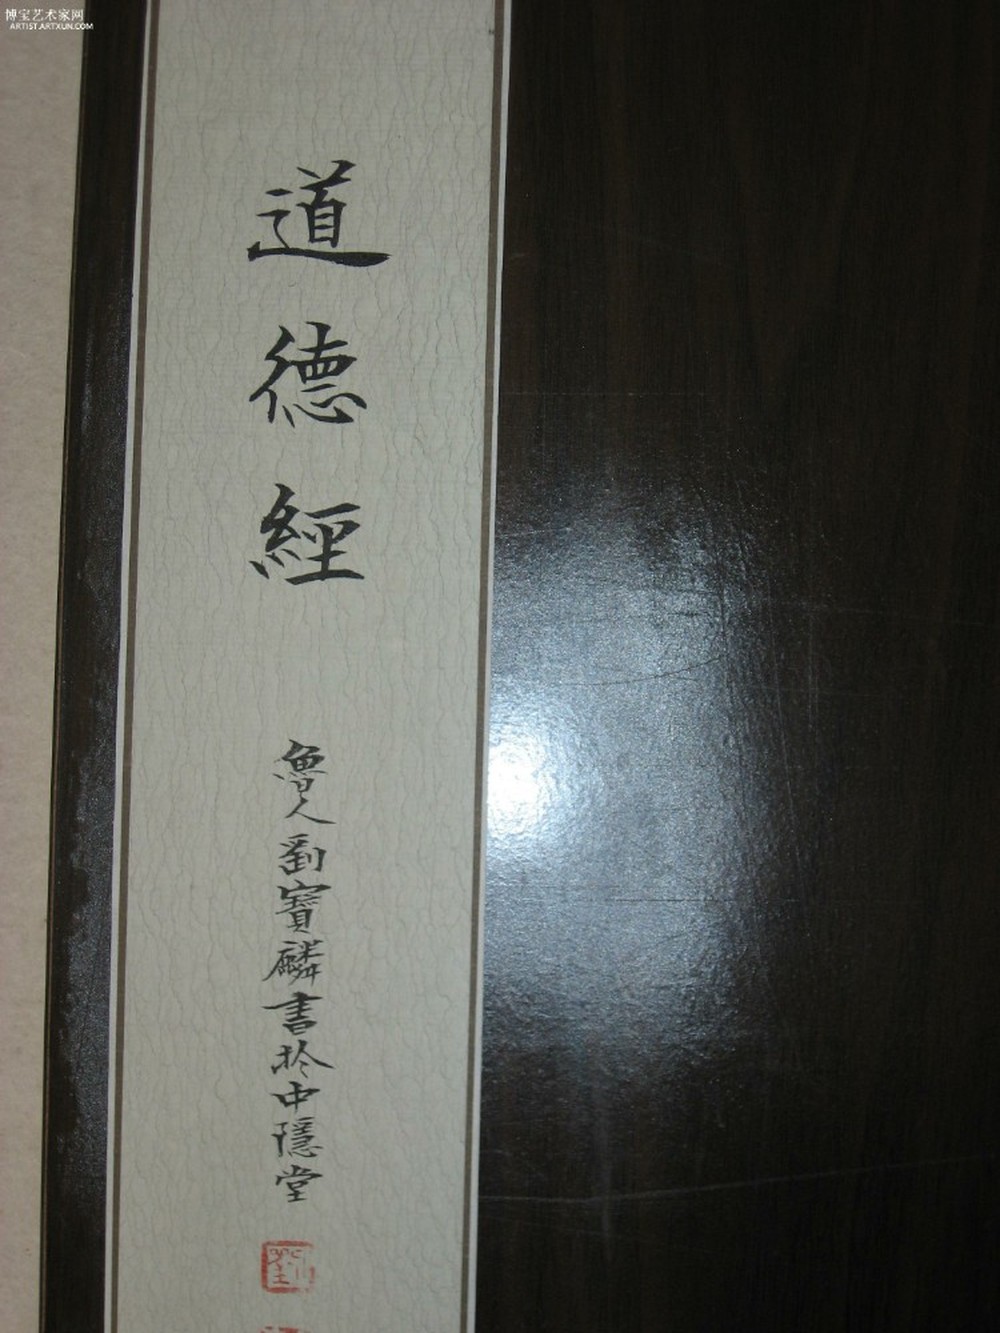 博宝艺术家网
ARTIST.ARTXUN.COM
道德經
魯人劉寶麟書於中隱堂
劉